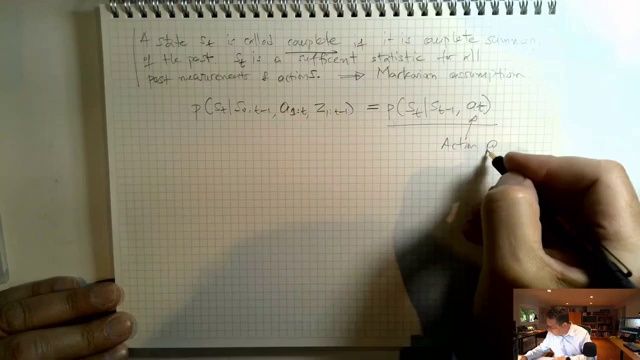 A state St is called complete if it is complete summary
of the past St is a sufficent statistic for all
past measurements & actions. ⟹ Markovian assumption
p(St|S0:t-1, a1:t, Z1:t-1) = p(St|St-1, at)
Action @